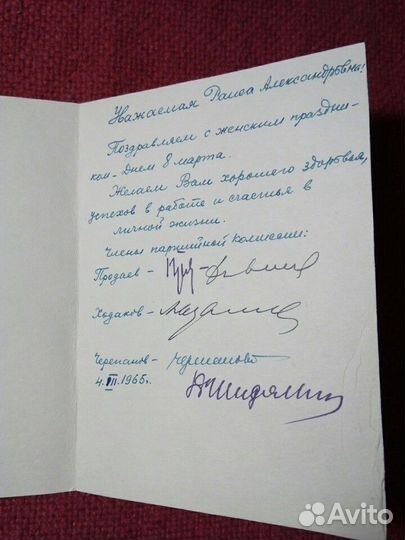 Уважаемая Раиса Александровна!
Поздравляем с женским праздни-
ком - Днем 8 марта.
Желаем Вам хорошего здоровья,
успехов в работе и счастья в
личной жизни.
Члены партийной комиссии:
Продаев -
Ходаков -
Черепанов -
4.III.1965г.
Avito